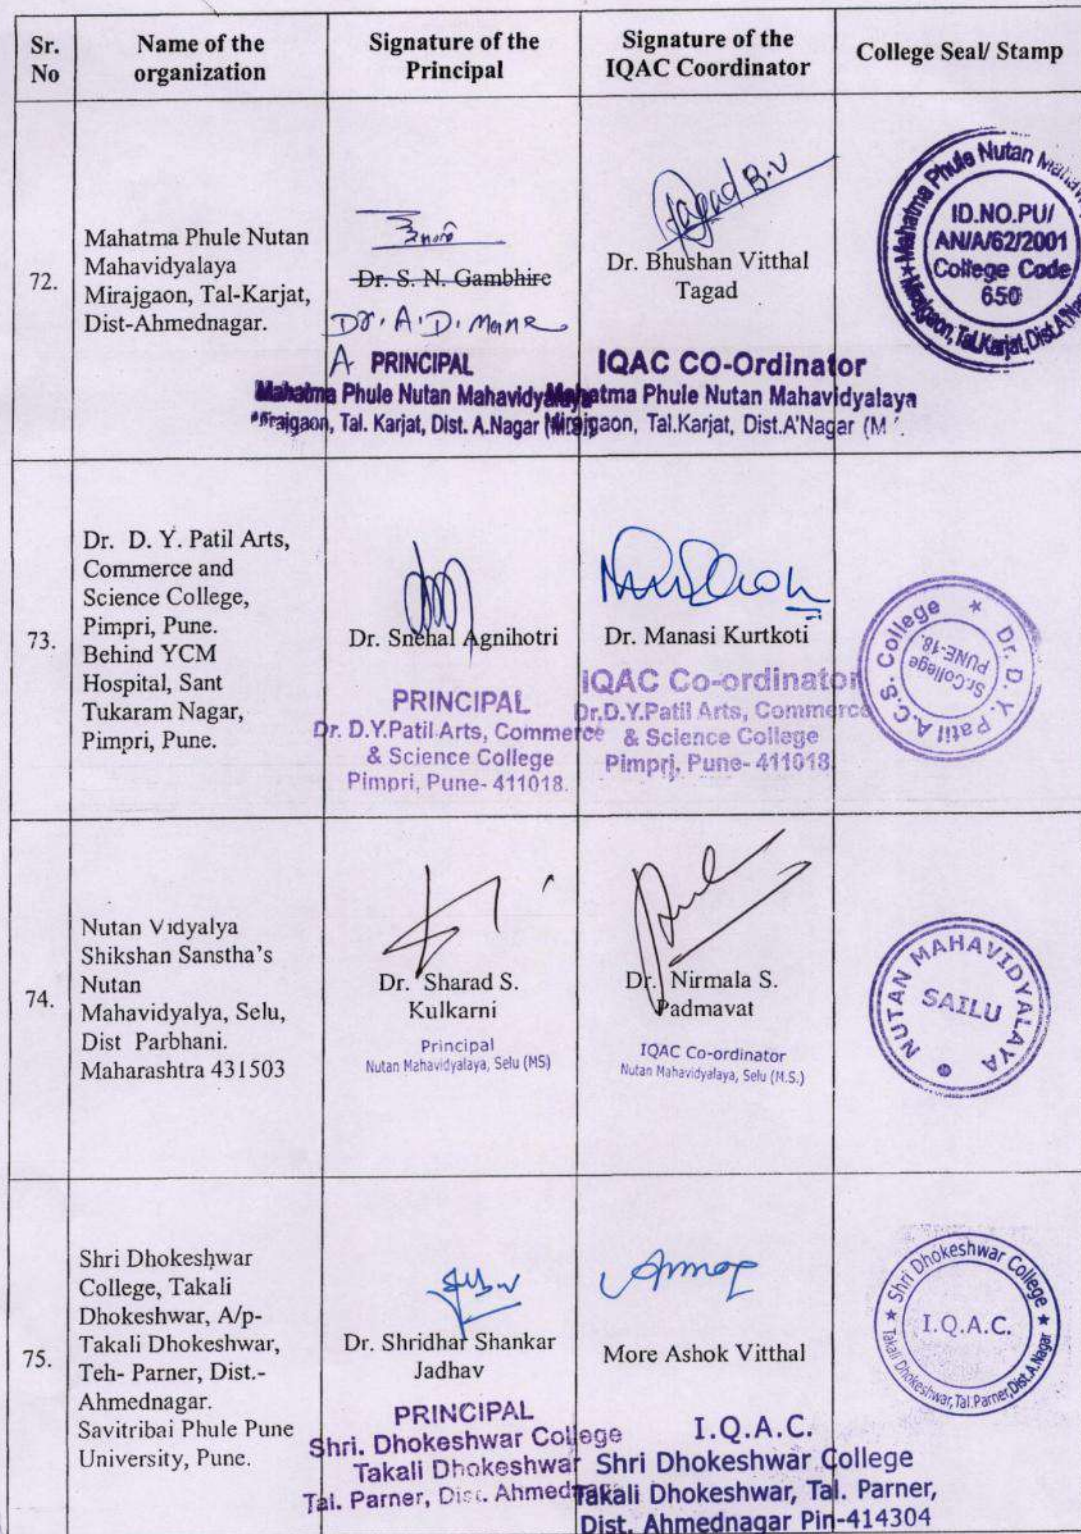 Sr. No
Name of the organization
Signature of the Principal
Signature of the IQAC Coordinator
College Seal/ Stamp
72.
Mahatma Phule Nutan
Mahavidyalaya
Mirajgaon, Tal-Karjat,
Dist-Ahmednagar.
Dr. S. N. Gambhire
Dr. A. D. Mane
A PRINCIPAL
Mahatma Phule Nutan Mahavidyalaya
Tal. Karjat, Dist. A.Nagar
Tagad B.V
Dr. Bhushan Vitthal
Tagad
IQAC CO-Ordinator
Mahatma Phule Nutan Mahavidyalaya
Mirajgaon, Tal.Karjat, Dist.A'Nagar (M
Mahatma Phule Nutan
ID.NO.PU/
AN/A/62/2001
College Code
650
Mirajgaon, Tal.Karjat, Dist.A'Nag
73.
Dr. D. Y. Patil Arts,
Commerce and
Science College,
Pimpri, Pune.
Behind YCM
Hospital, Sant
Tukaram Nagar,
Pimpri, Pune.
Dr. Snehal Agnihotri
PRINCIPAL
Dr. D.Y.Patil Arts, Commerce
& Science College
Pimpri, Pune- 411018.
Dr. Manasi Kurtkoti
IQAC Co-ordinator
Dr.D.Y.Patil Arts, Commerce
& Science College
Pimpri, Pune- 411018.
Dr. D. Y. Patil A.C.S. College
Sr.College
PUNE-18.
74.
Nutan Vidyalya
Shikshan Sanstha's
Nutan
Mahavidyalya, Selu,
Dist Parbhani.
Maharashtra 431503
Dr. Sharad S.
Kulkarni
Principal
Nutan Mahavidyalaya, Selu (MS)
Dr. Nirmala S.
Padmavat
IQAC Co-ordinator
Nutan Mahavidyalaya, Selu (M.S.)
NUTAN MAHAVIDYALAYA
SAILU
75.
Shri Dhokeshwar
College, Takali
Dhokeshwar, A/p-
Takali Dhokeshwar,
Teh- Parner, Dist.-
Ahmednagar.
Savitribai Phule Pune
University, Pune.
Dr. Shridhar Shankar
Jadhav
PRINCIPAL
Shri. Dhokeshwar College
Takali Dhokeshwar
Tal. Parner, Dist. Ahmed
More Ashok Vitthal
I.Q.A.C.
Shri Dhokeshwar College
Takali Dhokeshwar, Tal. Parner,
Dist. Ahmednagar Pin-414304
Shri Dhokeshwar College
I.Q.A.C.
Takali Dhokeshwar, Tal.Parner, Dist.A.Nagar